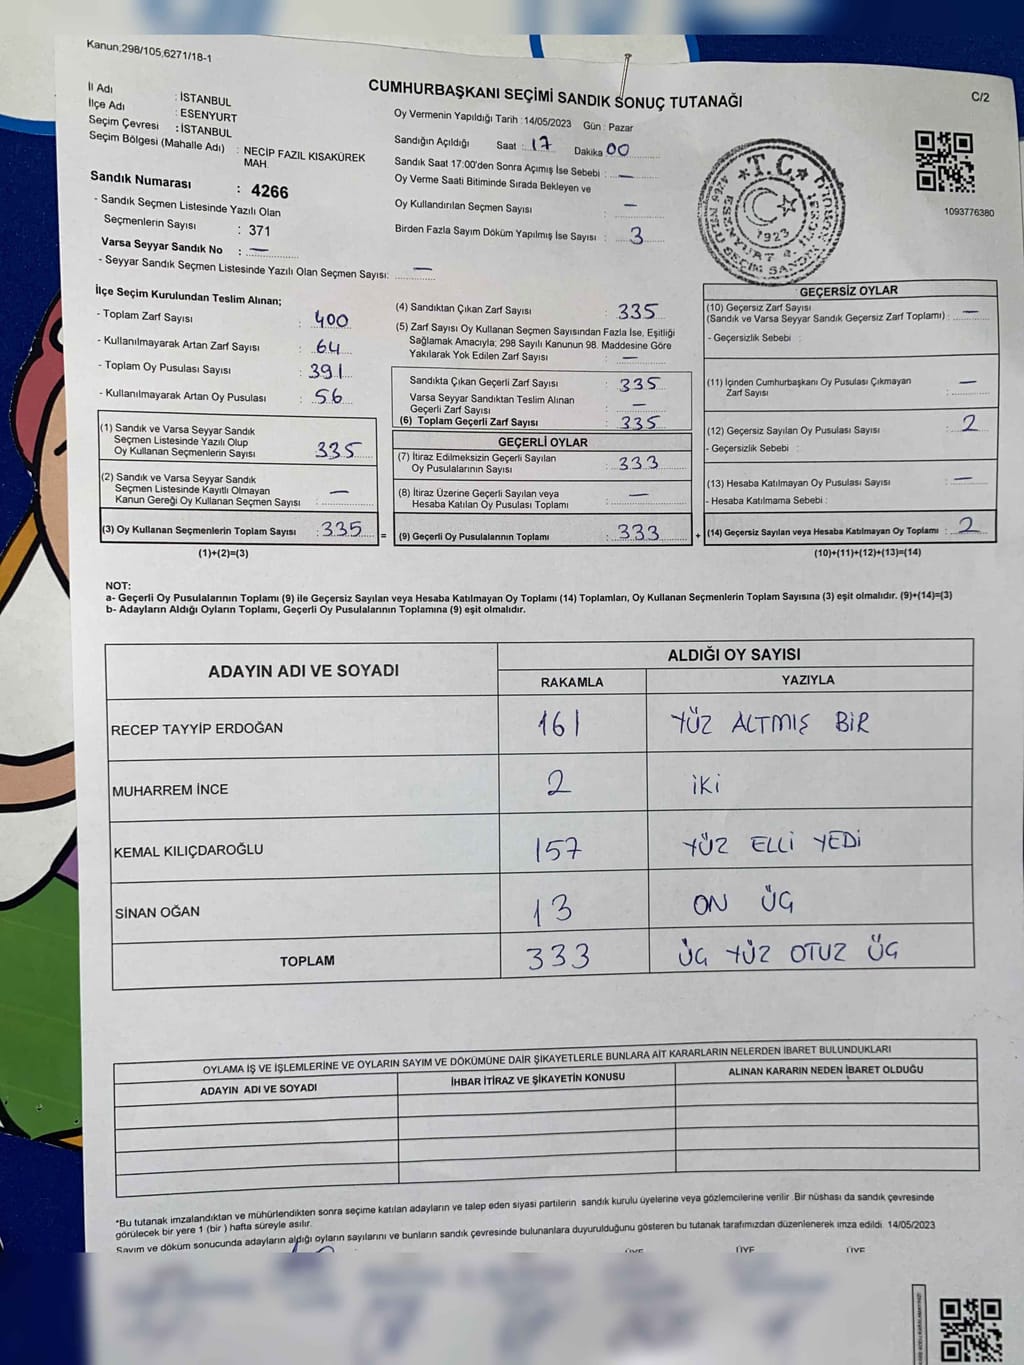 Kanun,298/105,6271/18-1
C/2
CUMHURBAŞKANI SEÇİMİ SANDIK SONUÇ TUTANAĞI
İl Adı : İSTANBUL
İlçe Adı : ESENYURT
Seçim Çevresi : İSTANBUL
Seçim Bölgesi (Mahalle Adı) : NECİP FAZIL KISAKÜREK
MAH.
Sandık Numarası : 4266
- Sandık Seçmen Listesinde Yazılı Olan
Seçmenlerin Sayısı : 371
Varsa Seyyar Sandık No : —
- Seyyar Sandık Seçmen Listesinde Yazılı Olan Seçmen Sayısı: —
Oy Vermenin Yapıldığı Tarih : 14/05/2023 Gün : Pazar
Sandığın Açıldığı Saat : 17 Dakika 00
Sandık Saat 17:00'den Sonra Açımış İse Sebebi : —
Oy Verme Saati Bitiminde Sırada Bekleyen ve
Oy Kullandırılan Seçmen Sayısı : —
Birden Fazla Sayım Döküm Yapılmış İse Sayısı : 3
T.C.
1923
1093776380
İlçe Seçim Kurulundan Teslim Alınan;
- Toplam Zarf Sayısı : 400
- Kullanılmayarak Artan Zarf Sayısı : 64
- Toplam Oy Pusulası Sayısı : 391
- Kullanılmayarak Artan Oy Pusulası : 56
(1) Sandık ve Varsa Seyyar Sandık
Seçmen Listesinde Yazılı Olup
Oy Kullanan Seçmenlerin Sayısı : 335
(2) Sandık ve Varsa Seyyar Sandık
Seçmen Listesinde Kayıtlı Olmayan
Kanun Gereği Oy Kullanan Seçmen Sayısı : —
(3) Oy Kullanan Seçmenlerin Toplam Sayısı : 335
(1)+(2)=(3)
(4) Sandıktan Çıkan Zarf Sayısı : 335
(5) Zarf Sayısı Oy Kullanan Seçmen Sayısından Fazla İse, Eşitliği
Sağlamak Amacıyla; 298 Sayılı Kanunun 98. Maddesine Göre
Yakılarak Yok Edilen Zarf Sayısı : —
Sandıkta Çıkan Geçerli Zarf Sayısı : 335
Varsa Seyyar Sandıktan Teslim Alınan
Geçerli Zarf Sayısı : —
(6) Toplam Geçerli Zarf Sayısı : 335
GEÇERLİ OYLAR
(7) İtiraz Edilmeksizin Geçerli Sayılan
Oy Pusulalarının Sayısı : 333
(8) İtiraz Üzerine Geçerli Sayılan veya
Hesaba Katılan Oy Pusulası Toplamı : —
= (9) Geçerli Oy Pusulalarının Toplamı : 333 +
GEÇERSİZ OYLAR
(10) Geçersiz Zarf Sayısı
(Sandık ve Varsa Seyyar Sandık Geçersiz Zarf Toplamı) : —
- Geçersizlik Sebebi :
(11) İçinden Cumhurbaşkanı Oy Pusulası Çıkmayan
Zarf Sayısı : —
(12) Geçersiz Sayılan Oy Pusulası Sayısı : 2
- Geçersizlik Sebebi :
(13) Hesaba Katılmayan Oy Pusulası Sayısı : —
- Hesaba Katılmama Sebebi :
(14) Geçersiz Sayılan veya Hesaba Katılmayan Oy Toplamı : 2
(10)+(11)+(12)+(13)=(14)
NOT:
a- Geçerli Oy Pusulalarının Toplamı (9) ile Geçersiz Sayılan veya Hesaba Katılmayan Oy Toplamı (14) Toplamları, Oy Kullanan Seçmenlerin Toplam Sayısına (3) eşit olmalıdır. (9)+(14)=(3)
b- Adayların Aldığı Oyların Toplamı, Geçerli Oy Pusulalarının Toplamına (9) eşit olmalıdır.
ADAYIN ADI VE SOYADI ALDIĞI OY SAYISI
RAKAMLA YAZIYLA
RECEP TAYYİP ERDOĞAN 161 YÜZ ALTMIŞ BİR
MUHARREM İNCE 2 İKİ
KEMAL KILIÇDAROĞLU 157 YÜZ ELLİ YEDİ
SİNAN OĞAN 13 ON ÜÇ
TOPLAM 333 ÜÇ YÜZ OTUZ ÜÇ
OYLAMA İŞ VE İŞLEMLERİNE VE OYLARIN SAYIM VE DÖKÜMÜNE DAİR ŞİKAYETLERLE BUNLARA AİT KARARLARIN NELERDEN İBARET BULUNDUKLARI
ADAYIN ADI VE SOYADI İHBAR İTİRAZ VE ŞİKAYETİN KONUSU ALINAN KARARIN NEDEN İBARET OLDUĞU
*Bu tutanak imzalandıktan ve mühürlendikten sonra seçime katılan adayların ve talep eden siyasi partilerin sandık kurulu üyelerine veya gözlemcilerine verilir .Bir nüshası da sandık çevresinde
görülecek bir yere 1 (bir ) hafta süreyle asılır.
Sayım ve döküm sonucunda adayların aldığı oyların sayılarını ve bunların sandık çevresinde bulunanlara duyurulduğunu gösteren bu tutanak tarafımızdan düzenlenerek imza edildi. 14/05/2023
ÜYE ÜYE ÜYE